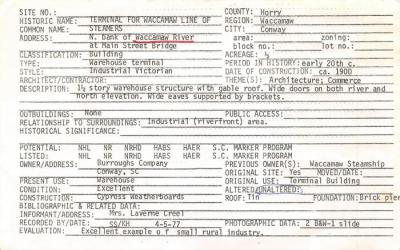 SITE NO.: COUNTY: Horry
HISTORIC NAME: TERMINAL FOR WACCAMAW LINE OF REGION: Waccamaw
COMMON NAME: STEAMERS CITY: Conway
ADDRESS: N. Bank of Waccamaw River area: zoning:
at Main Street Bridge block no.: lot no.:
CLASSIFICATION: Building ACREAGE: ¼
TYPE: Warehouse terminal PERIOD IN HISTORY: early 20th c.
STYLE: Industrial Victorian DATE OF CONSTRUCTION: ca. 1900
ARCHITECT/CONTRACTOR: THEME(S): Architecture; Commerce
DESCRIPTION: 1½ story warehouse structure with gable roof. Wide doors on both river and
north elevation. Wide eaves supported by brackets.
OUTBUILDINGS: None PUBLIC ACCESS:
RELATIONSHIP TO SURROUNDINGS: Industrial (riverfront) area.
HISTORICAL SIGNIFICANCE:
POTENTIAL: NHL NR NRHD HABS HAER S.C. MARKER PROGRAM
LISTED: NHL NR NRHD HABS HAER S.C. MARKER PROGRAM
OWNER/ADDRESS: Burroughs Company PREVIOUS OWNER(S): Waccamaw Steamship
Conway, SC ORIGINAL SITE: Yes MOVED/DATE:
PRESENT USE: Warehouse ORIGINAL USE: Terminal Building
CONDITION: Excellent ALTERED/UNALTERED:
CONSTRUCTION: Cypress Weatherboards ROOF: Tin FOUNDATION: Brick pier
BIBLIOGRAPHIC & RELATED DATA:
INFORMANT/ADDRESS: Mrs. Laverne Creel
RECORDED BY/DATE: SS/KH 4-5-77 PHOTOGRAPHIC DATA: 2 B&W-1 slide
EVALUATION: Excellent example of small rural industry.